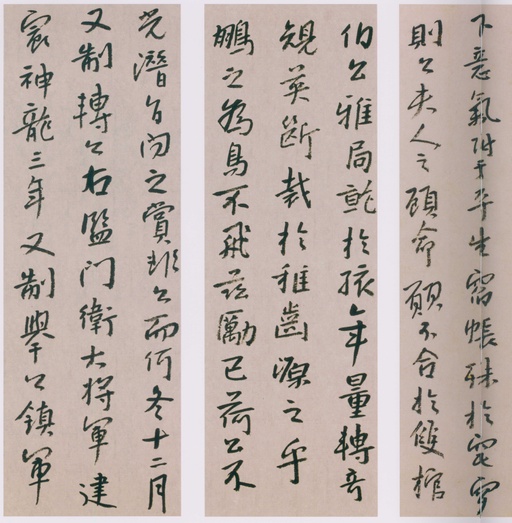 下氣附於平生宿帳殊於窀穸
則公夫人之顧命不合於雙棺
伯公雅局於孩年量轉奇
英斷裁於稚齒源之乎
鵬之為鳥不飛茲勵已荷公不
光潛自內之賞非公而何冬十二月
又制轉公右監門衛大將軍建
宸神龍三年又制舉公鎮軍